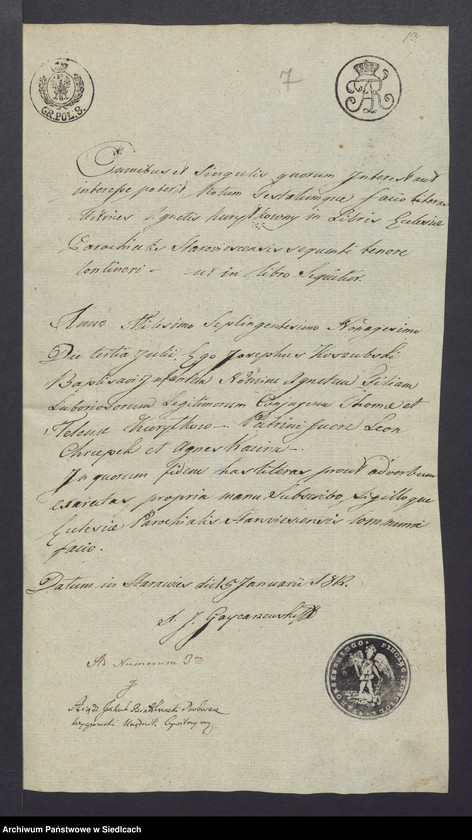 13.
7
GR.POL.8.
Omnibus et Singulis quorum Interest aut
interesse poterit Notum Testatumque facio literas
Metrices Agnetis Kuryłkowny in Libris Eclesiæ
Parochialis Staroviescensis sequenti tenore
Contineri – ut in libro Sequitur.
Anno Milesimo Septingentesimo Nonagesimo
Die tertia Julii Ego Josephus Koszubski
Baptisavi Infantem Nomine Agnetem Filiam
Laboriosorum Legitimorum Conjugum Thomæ et
Kuryłkow – Patrini fuere Leon
Chrupek et Agnes
In quorum fidem has literas prout ad verbum
exaratas propria manu Subscribo, Sigilloque
Eclesiæ Parochialis Staroviesiensis Communi
facio.
Datum in Starawies die 5 Januarii 1813.
Ad Numerum 3m
Xiądz Jakub Proboszcz
Urzędnik Cywilny
Archiwum Państwowe w Siedlcach